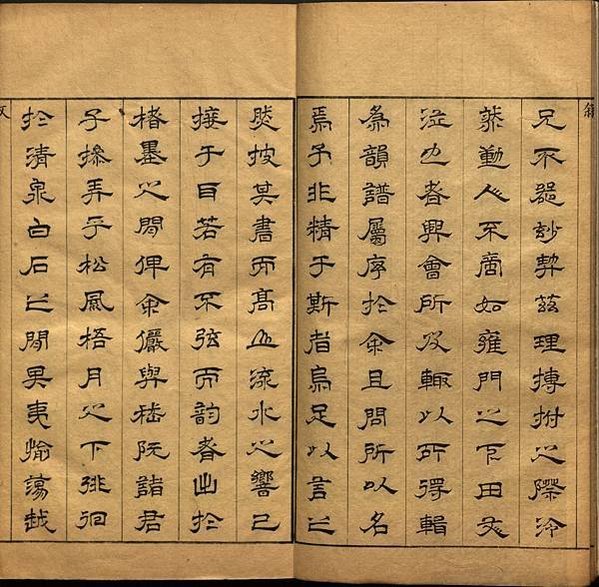 兄不器妙契茲理搏拊之際泠
然動人不啻如雍門之下田文
泣也者興會所及輒以所得輯
為韻譜屬序於余且問所以名
焉予非精于斯者烏足以言之
然披其書而高山流水之響已
接于目若有不弦而韵者出於
楮墨之間俾余儼與嵇阮諸君
子摻弄乎松風梧月之下徘徊
於清泉白石之間其夷愉蕩越